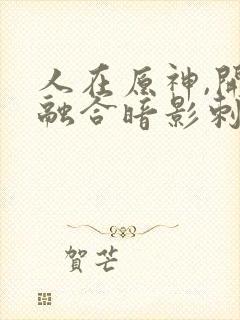 人在原神,開
融合暗影刺
賀芒